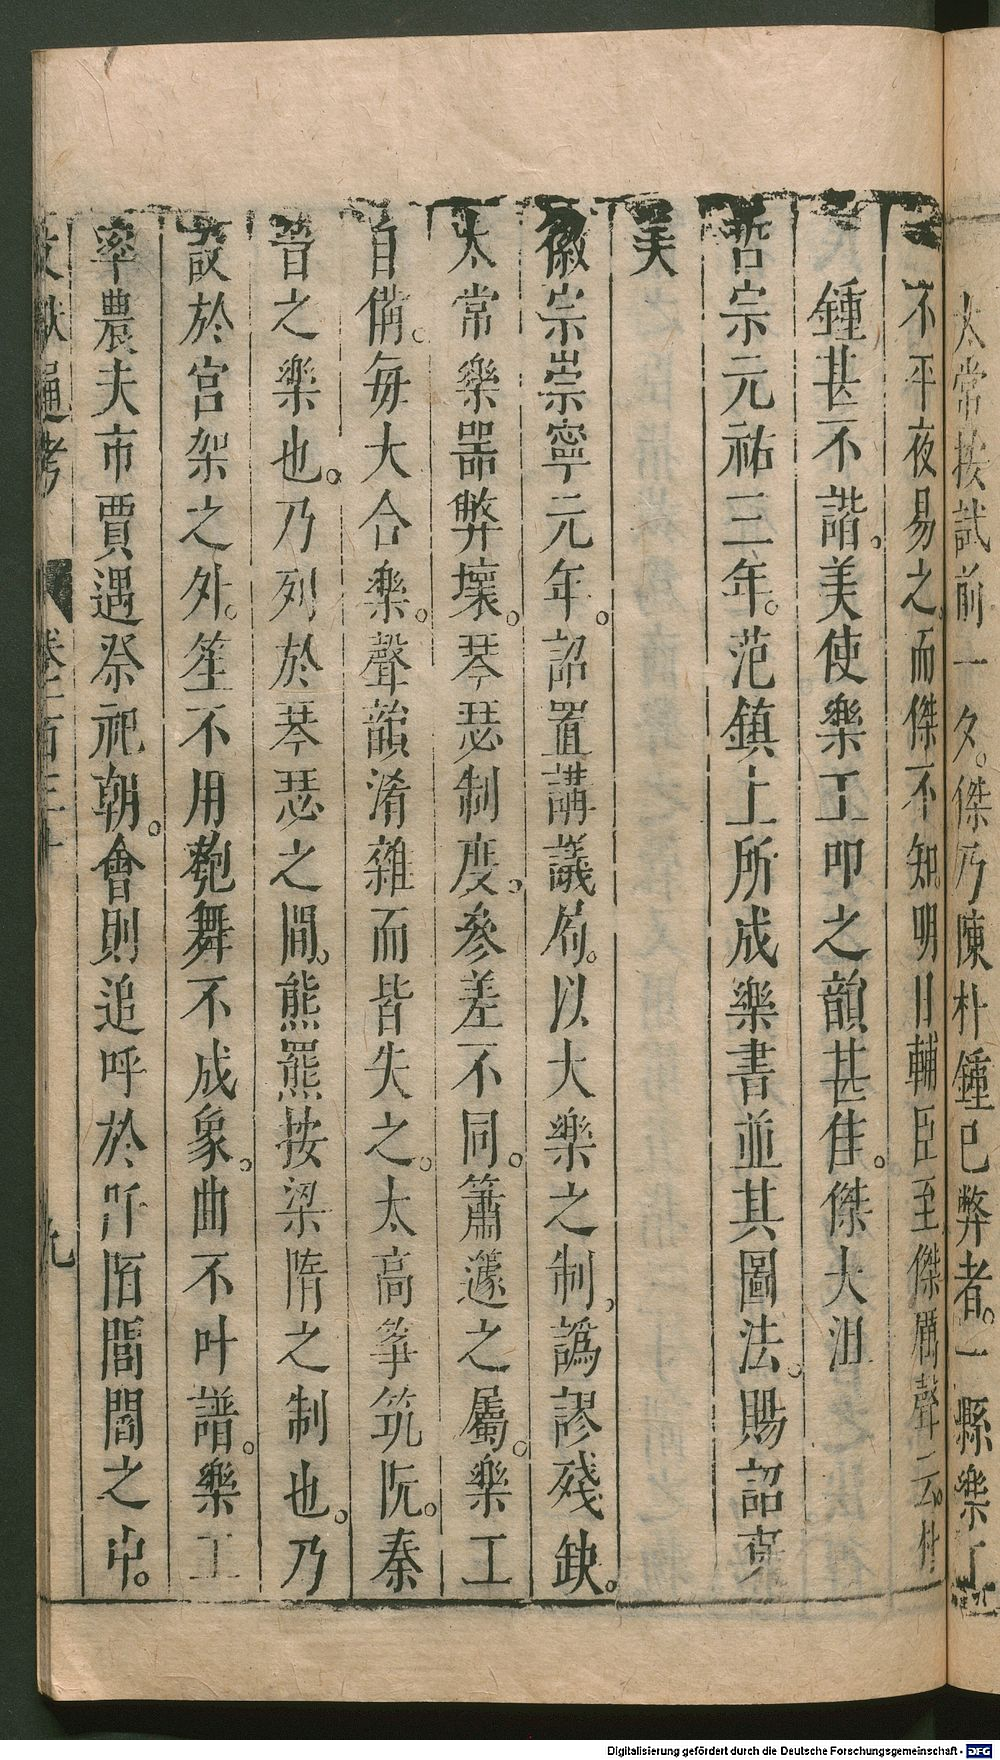 太常按試前一夕。傑乃陳朴鍾已弊者。一縣樂工
不平夜易之。而傑不知。明日輔臣至傑厲聲云。朴
鍾甚不諧。美使樂工叩之韻甚佳。傑大沮
哲宗元祐三年。范鎮上所成樂書並其圖法。賜詔褒
美
徽宗崇寧元年。詔置講議局。以大樂之制。譌謬殘缺。
太常樂器弊壞。琴瑟制度。參差不同。簫篴之屬。樂工
自備。每大合樂。聲韻淆雜而皆失之。太高筝筑阮。秦
晉之樂也。乃列於琴瑟之間。熊羆按梁隋之制也。乃
設於宮架之外。笙不用匏舞不成象。曲不叶譜。樂工
率農夫市賈遇祭祀朝。會則追呼於阡陌閭閻之中。
文獻通考 卷一百三十 九
Digitalisierung gefördert durch die Deutsche Forschungsgemeinschaft - DFG